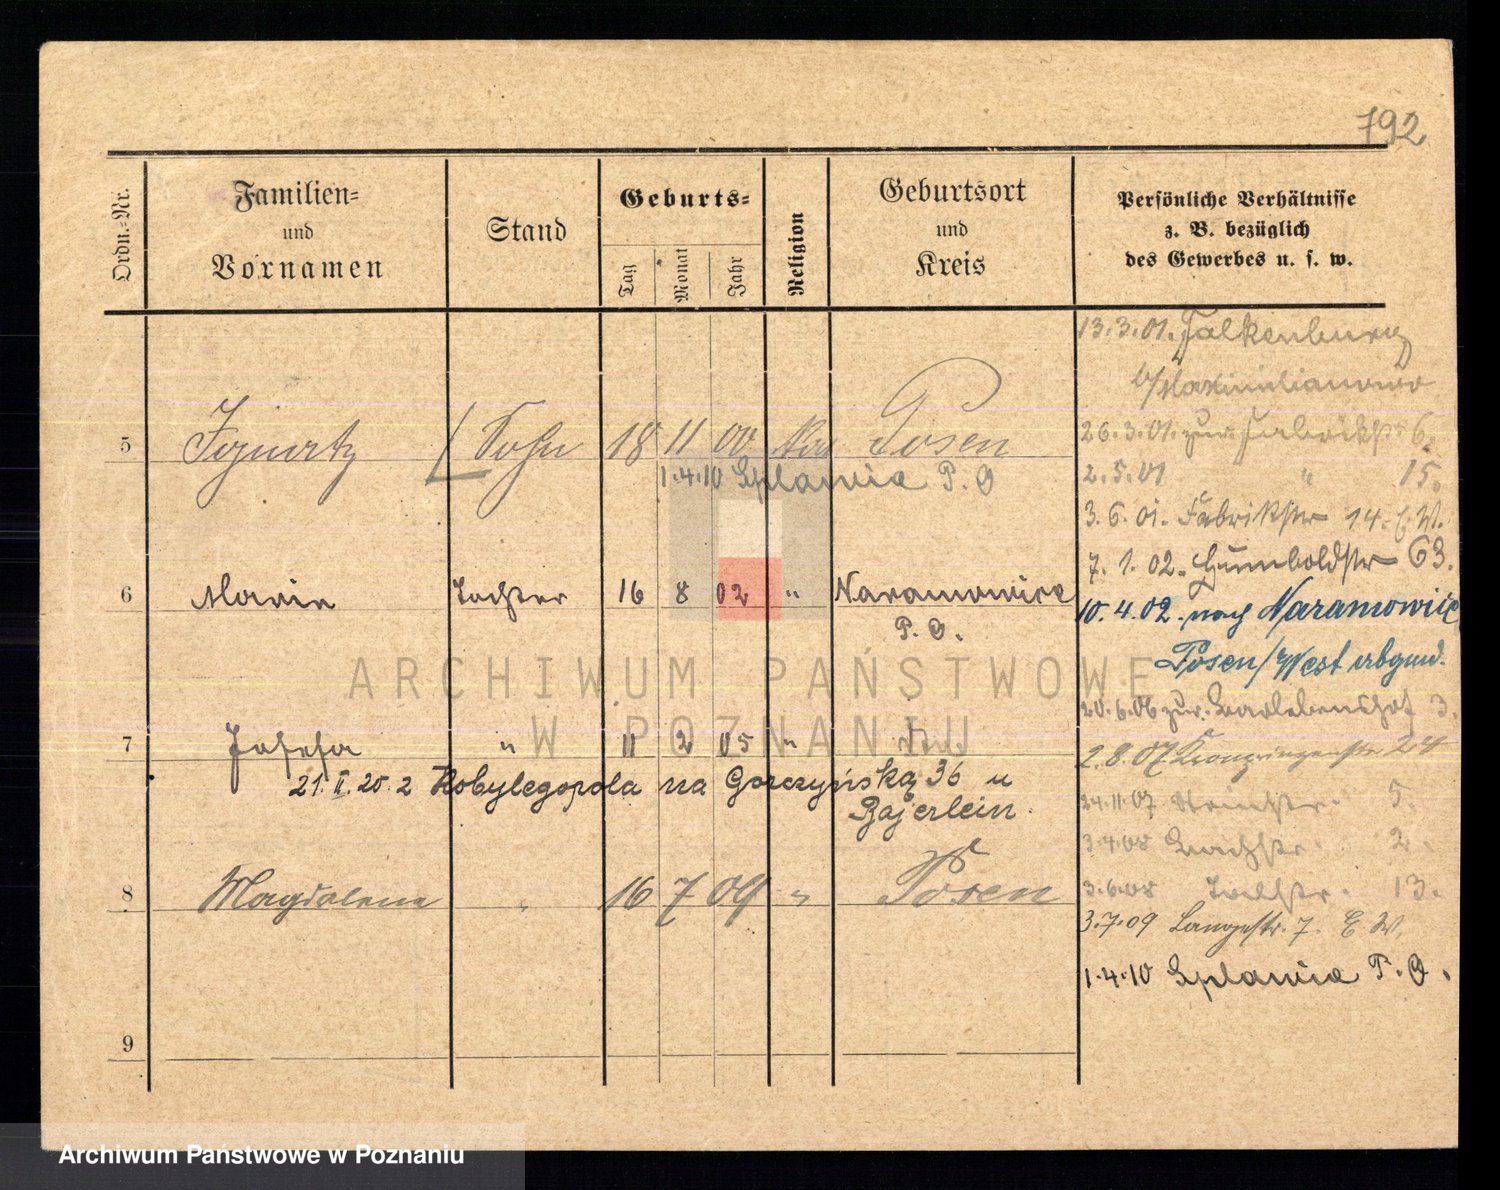 792
Ordn.-Nr.
Familien-
und
Vornamen
Stand
Geburts-
Tag
Monat
Jahr
Religion
Geburtsort
und
Kreis
Persönliche Verhältnisse
z. B. bezüglich
des Gewerbes u. s. w.
5 Ignatz Sohn 18 11 00 Posen
1.4.10 P. O
6 Marie Tochter 16 8 02 " Naramowice
P. O.
7 Josefa " 11 2 05 "
21. II. 25. z Kobylegopola na Gorczyńską 36 u
Bajerlein.
8 Magdalena " 16 7 09 " Posen
9
13.3.01. Falkenburg
b/Maximilianowo
26.3.01. zur Fabrikstr 6.
2.5.01 " 15.
3.6.01. Fabrikstr 14. E. W.
7.1.02. Humboldstr 63.
10.4.02. nach Naramowice
Posen/West abgmd.
20.6.06 zur 3.
2.8.07 Kronprinzenstr 24
24.11.07 5.
3.4.08 Bachstr. 2.
3.6.08 13.
3.7.09 Langestr. 7. E. W.
1.4.10 P. O.
ARCHIWUM PAŃSTWOWE
W POZNANIU
Archiwum Państwowe w Poznaniu